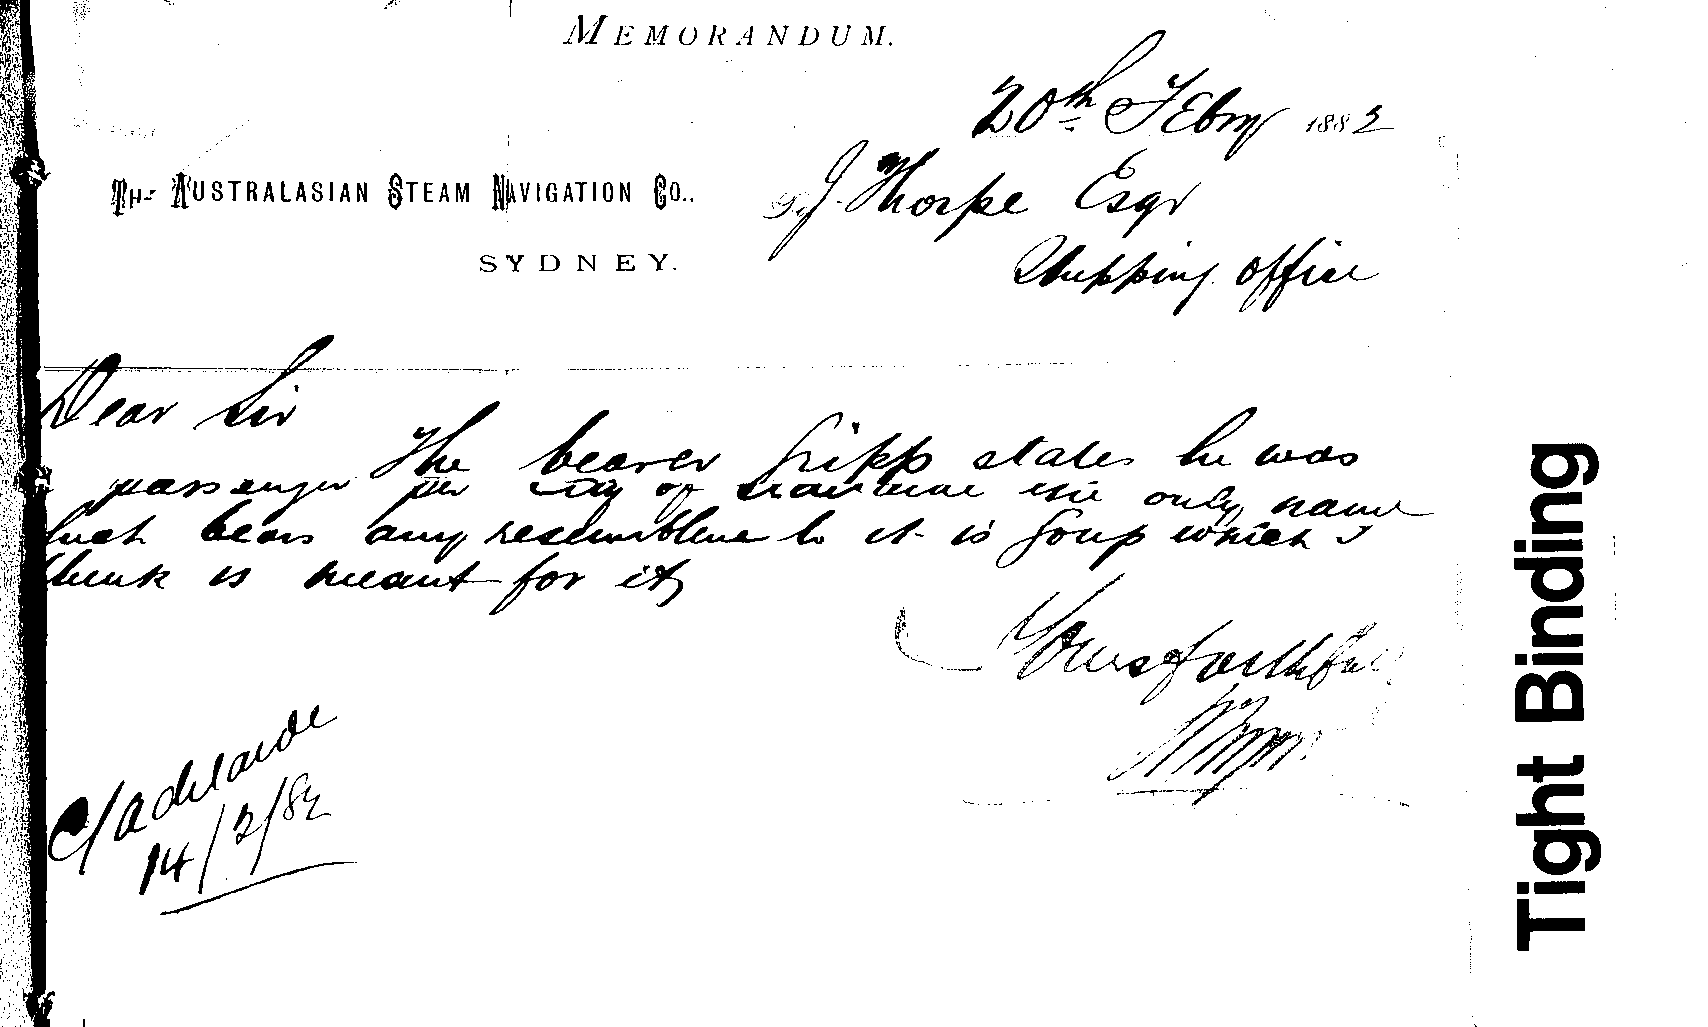 MEMORANDUM.
20th Febry 1882
THE AUSTRALASIAN STEAM NAVIGATION CO.,
SYDNEY.
To J. Thorpe Esqr
Shipping office
Dear Sir
The bearer Gripp states he was
passenger per City of the only name
such bears any resemblence to it is Goup which I
think is meant for it
Yours faithful
C/Adelaide
14/2/82
Tight Binding